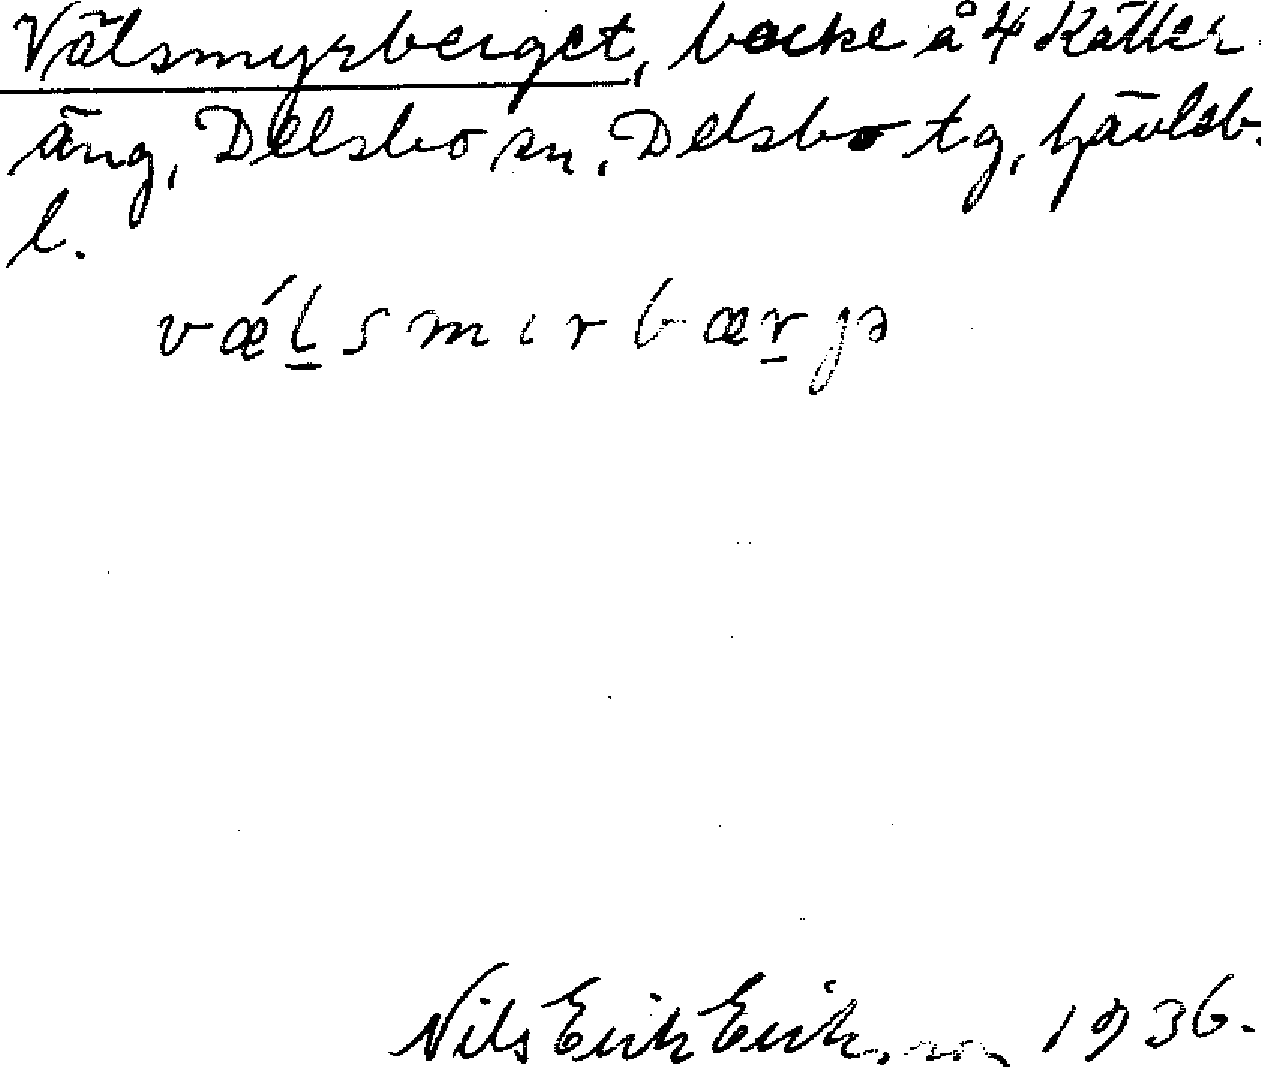 Välsmyrberget, backe å 4 Kätter
äng, Delsbo sn, Delsbo tg, Gävleb.
l.
vǽl̲smɩrbær̲jə
Nils Erik Eriksson 1936.